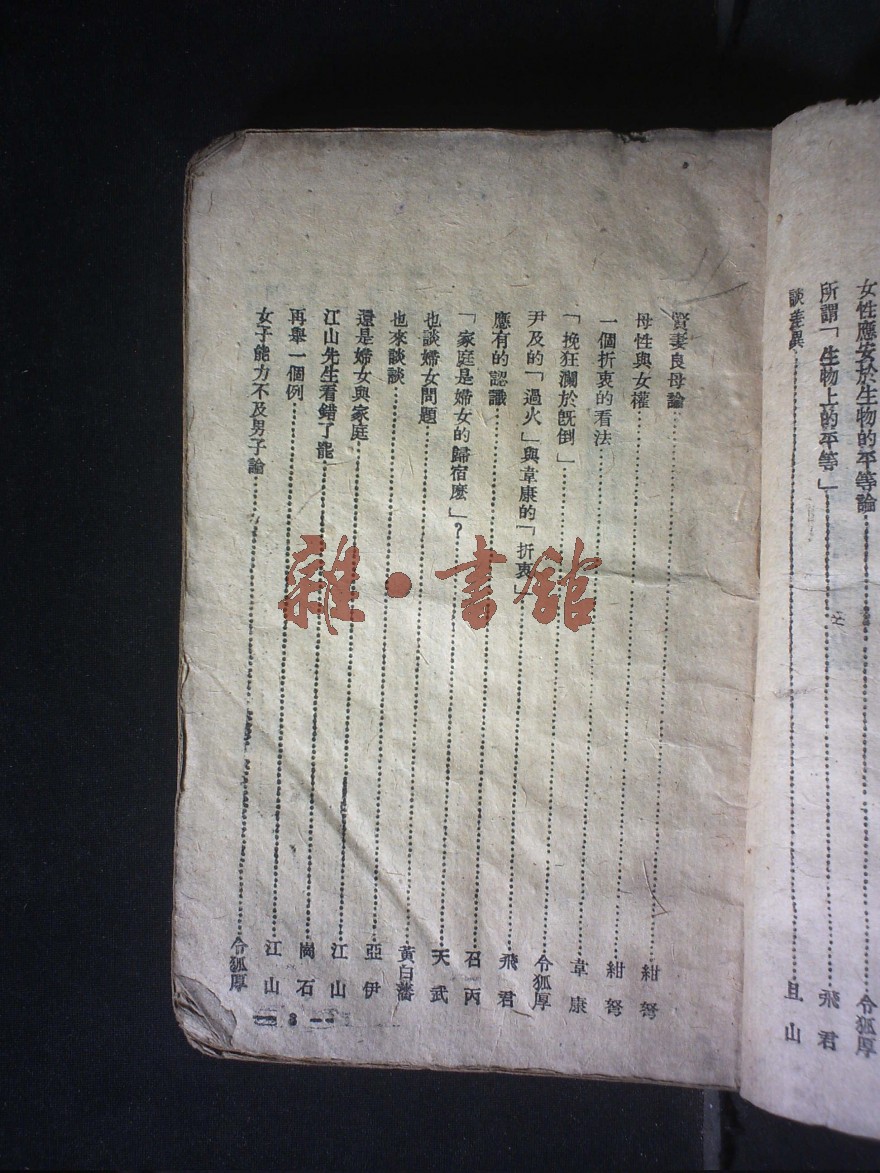 女性應安於生物的平等論……令狐厚
所謂「生物上的平等」……飛君
談差異……旦山
賢妻良母論……紺弩
母性與女權……紺弩
一個折衷的看法……韋康
「挽狂瀾於旣倒」……令狐厚
尹及的「過火」與韋康的「折衷」……飛君
應有的認識……石丙
「家庭是婦女的歸宿麼」?……天武
也談婦女問題……黃白藩
也來談談……亞伊
還是婦女與家庭……江山
江山先生看錯了罷……崗石
再舉一個例……江山
女子能力不及男子論……令狐厚
— 3 —
雜·書館